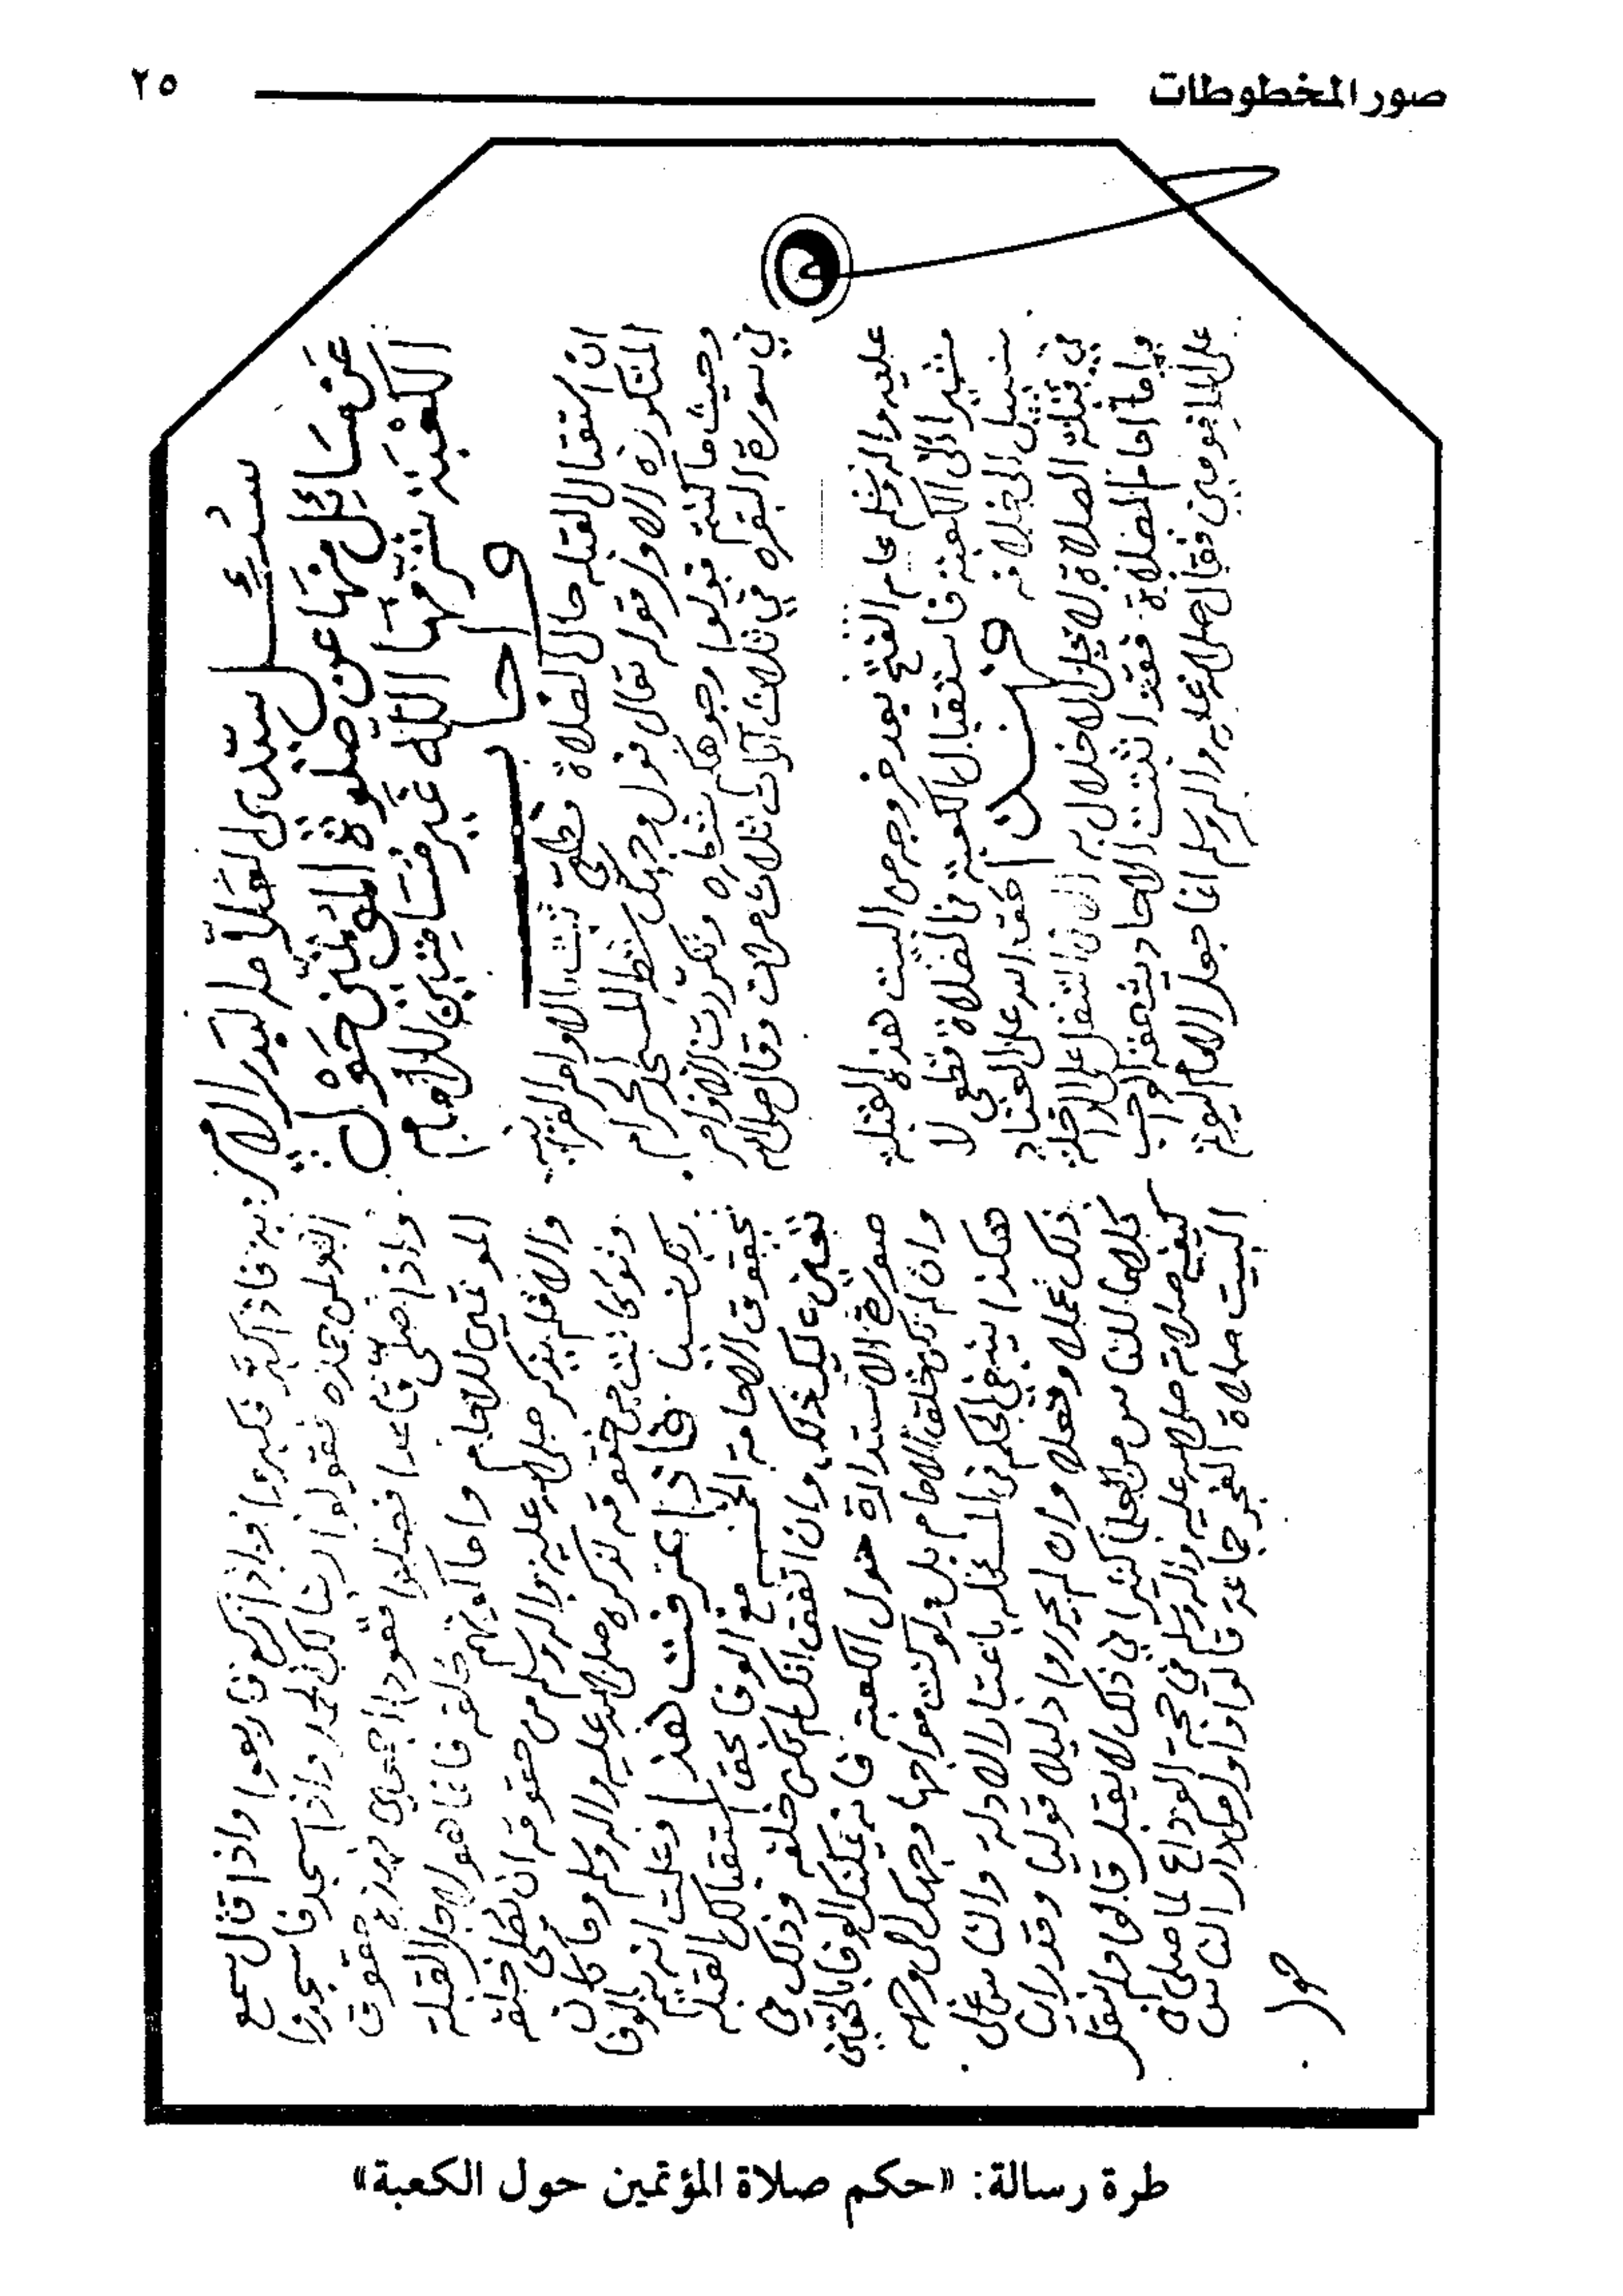 صور المخطوطات
٢٥
سئل سيدي العلامة البدر الامير
عن مسائل منها عن صلوة المؤتمين حول
الكعبة شرفها الله غير مسامتين للامام
واجاب
ان استقبال القبلة حال الصلاة قطعي ثبت بالاوامر القرآنيه
المتكررة الاولى قوله تعالى فول وجهك شطر المسجد الحرام
وحيث ما كنتم فولوا وجوهكم شطره وتكررت الاوامر
في سورة البقره في ثلاث آيات ثلاث مرات وقال صلى الله
عليه واله وسلم عام الفتح بعد خروجه من البيت هذه القبلة
مشيرا الى الكعبة فاستقبال الكعبة في الصلاة قطعي لا
سبيل الى خلافه فهذا حق الله على العباد
في قبلة الصلاة لا يحل الاخلال به الا في التنفل على الراحلة
واما امام الصلاة فقد ثبتت الاحاديث حقه الواجب
على المأمومين فقال صلى الله عليه واله وسلم انما جعل الامام ليؤتم
به فاذا كبر فكبروا واذا ركع فاركعوا واذا قال سمع
الله لمن حمده فقولوا ربنا لك الحمد واذا سجد فاسجدوا
واذا صلى قاعدا فصلوا قعودا اجمعين فهذه حقوق
المؤتمين للامام واما كونهم خلفه فانما هو لاجل القبلة
والا فلم يذكر صلى الله عليه واله وسلم من حقوقه ان يصلى خلفه
ولو كانت من حقوقه لذكره صلى الله عليه واله وسلم وما كان
ربك نسيا فاذا عرفت هذا وعلمت انه يتم الوفا
بحقوق الامامة الخمسه مع الوفا بحق استقبالك القبلة
تعين عليك ذلك وان اتفق انك لم تكن خلفه وذلك في
صورة الاستدارة حول الكعبة فانه يمكنك الوفا بالحقين
وان لم تكن خلف الامام بل ولو كنت مواجها وجهك الى وجهه
هكذا ينبغي الحكم في المسئله باعتبار الادلة والناس على
ذلك عملا وفعلا وان لم يجروا دليلا قوليا وقد رايت
كلاما للناس من العلما كثيرا في ذلك لا يقبل قالوا ولم ينقل
كيفية صلاته صلى الله عليه واله وسلم في حجة الوداع لما صلى في
البيت صلاة الفجر جماعة قالوا واول من ادار الناس
حول
طرة رسالة: «حكم صلاة المؤتمين حول الكعبة»